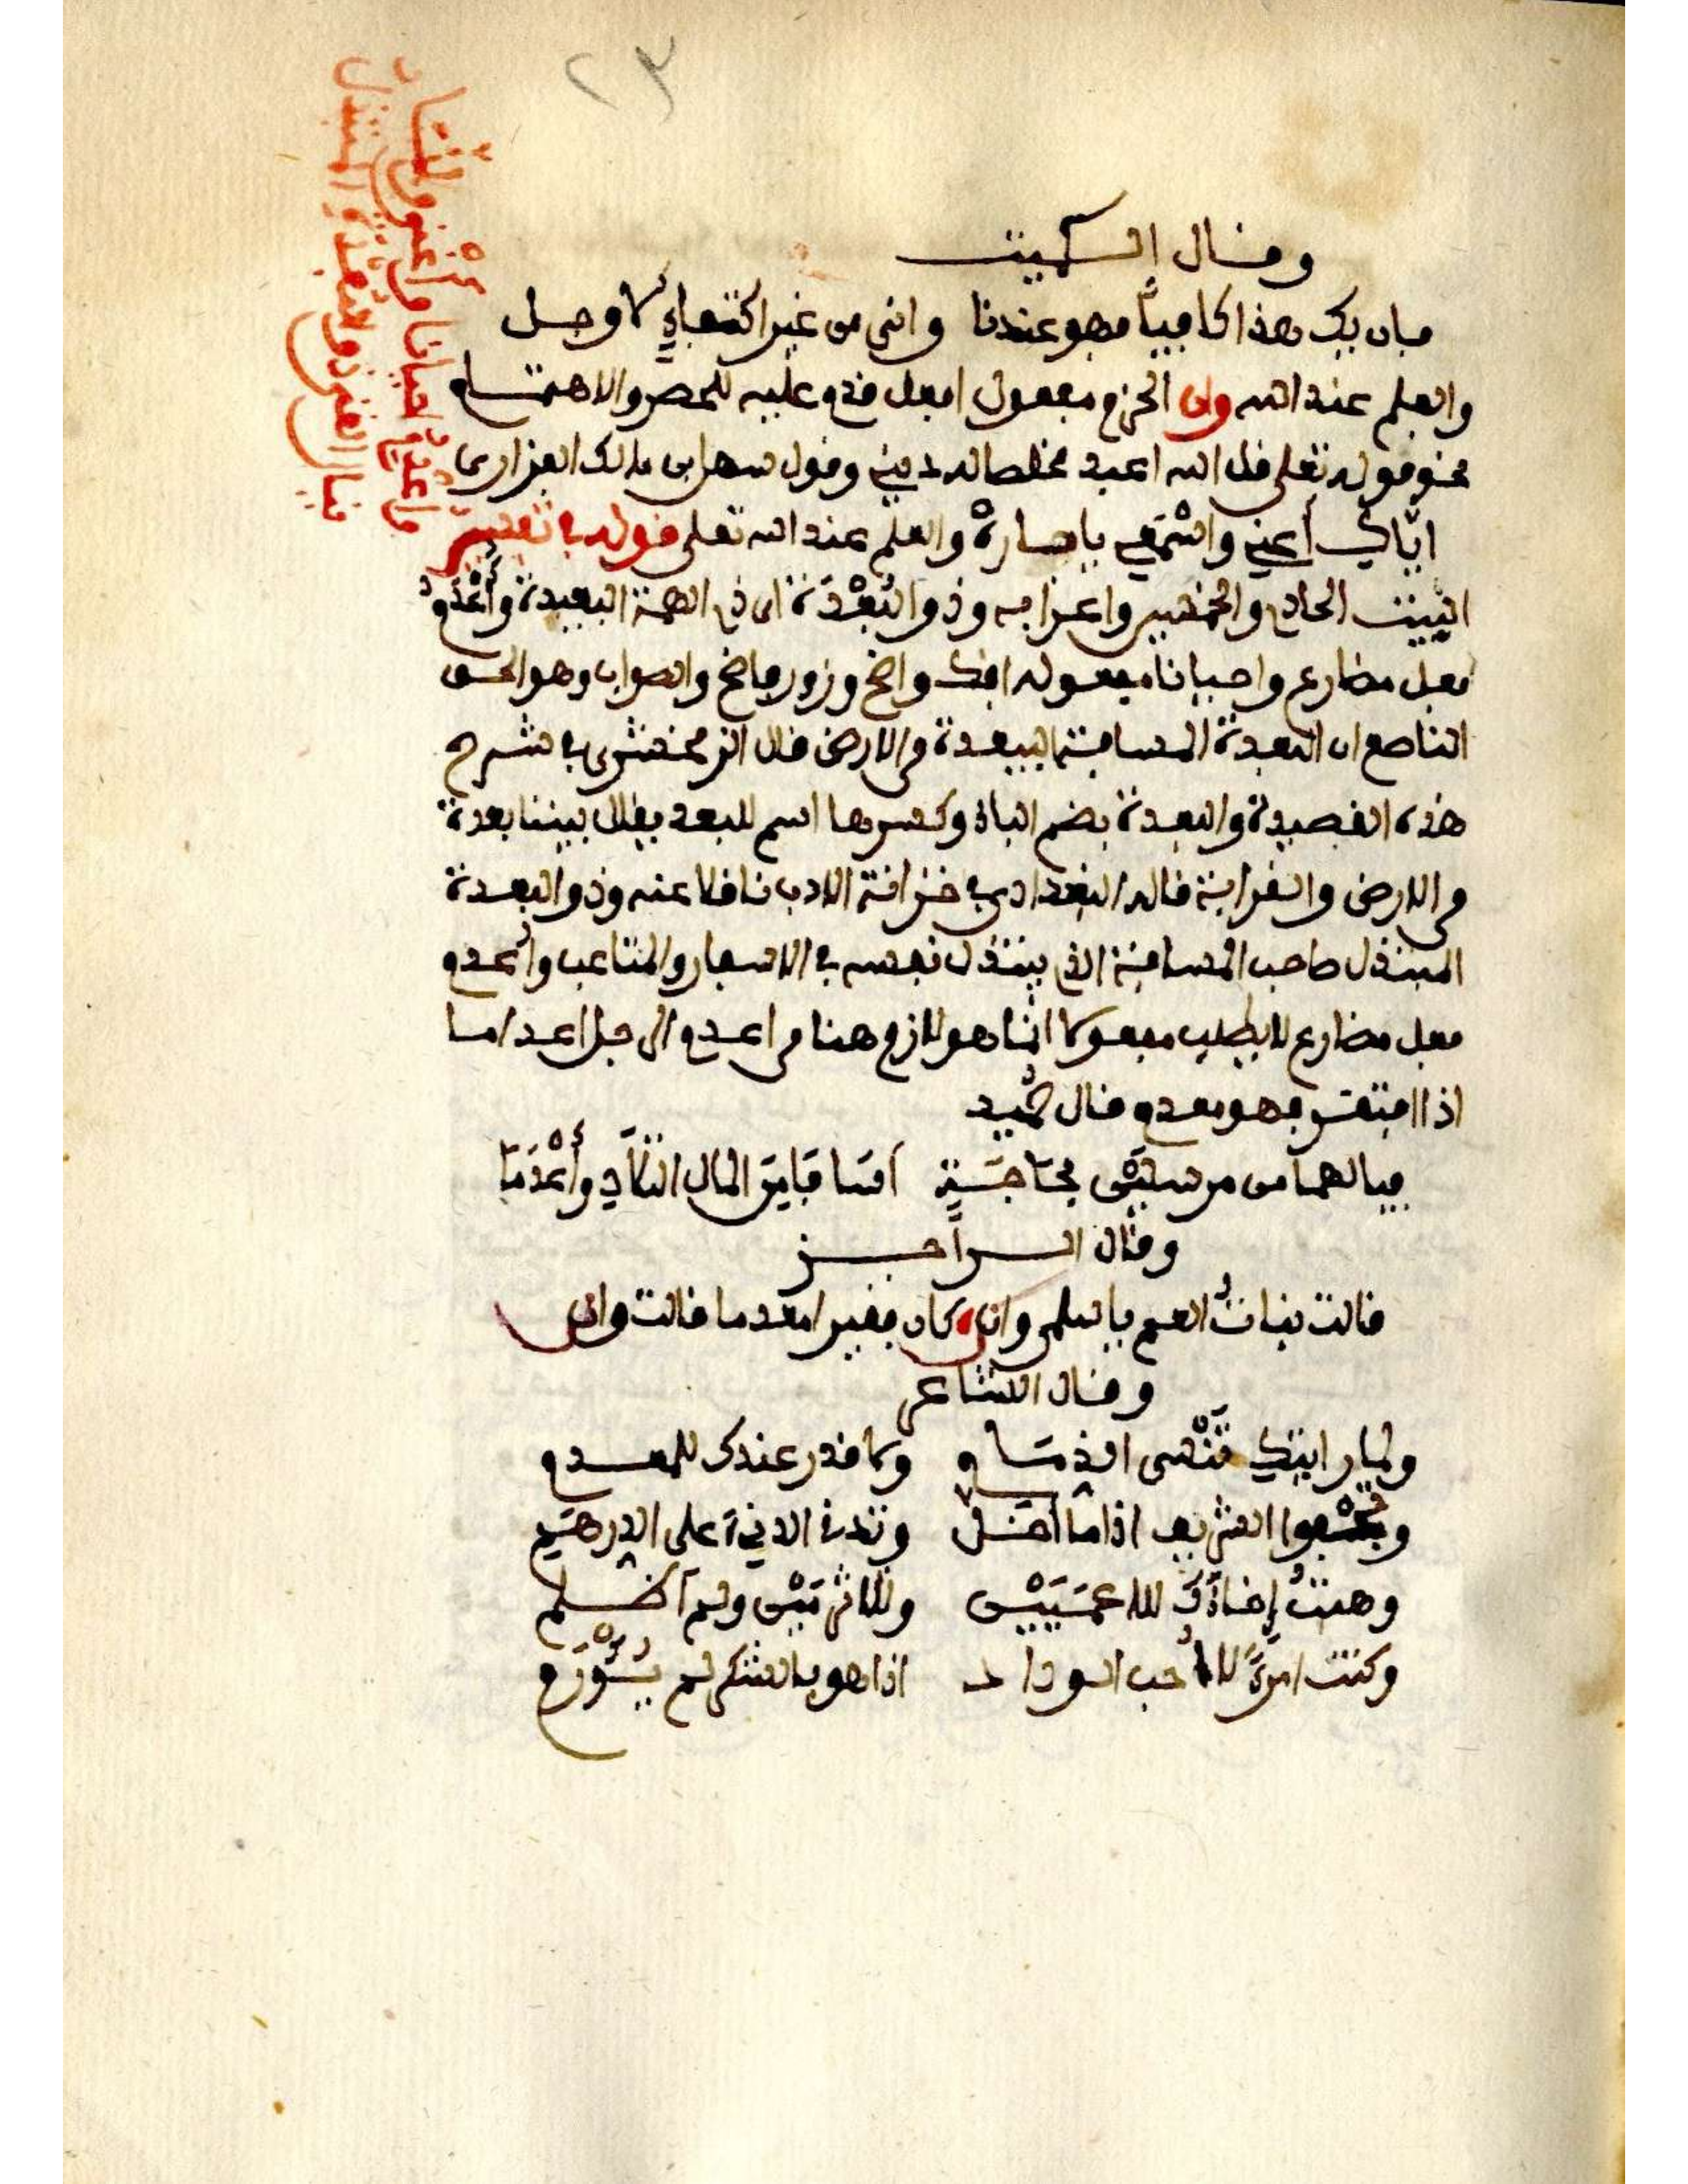 ٢٣
وقال الكميت
فان يك هذا كافيا فهو عندنا وانى من غير اكتفاء لاوجل
والعلم عند الله وان الحزم مفعول افعل قدم عليه للحصر والاهتمام
نحو قوله تعلى قل الله اعبد مخلصا له دينى وقول سهل بن مالك الفزارى
اياك أعنى واسْمَعى يا جارهْ والعلم عند الله تعلى قوله فى تفسير
البيت الحادى والخمسين واعرابه وذو البُعْدَة اى ذى الهمة البعيدة وأُعْدِمُ
فعل مضارع واحيانا مفعوله افك واضح وزور فاضح والصواب وهو الحق
الناصع ان البعدة المسافة البعيدة فى الارض قال الزمخشرى فى شرح
هذه القصيدة والبعدة بضم الباء وكسرها اسم للبعد يقال بيننا بعدة
فى الارض والقرابة قاله البغدادى فى خزانة الادب ناقلا عنه وذو البعدة
المبتذل صاحب المسافة الذى يبتذل نفسه فى الاسفار والمتاعب وأعدم
فعل مضارع لا يطلب مفعولا انما هو لازم هنا من اعدم الرجل اعداما
اذا افتقر فهو معدم قال حُميد
فيا لهما من مرسلين بحاجة أسافا من المال التلاد وأعْدَمَا
وقال الراجز
قالت بنات العم يا سلمى وان كان فقيرا معدما قالت وان
وقال الشاعر
ولما رايتك تَنْسى الذمام ولا قدر عندك للمعدم
وتجفو الشريف اذا ما أخل وتدنى الدنىّ على الدرهم
وهبتُ إخاءَك للاعميَيْن وللاثرمَيْن ولم أظلم
وكنت امرءًا لا أحب الوداد اذا هو بالشكر لم يُؤْدَم
واعدم احيانا واغنى وانما
ينال الغنى ذو البعدة المتبذل